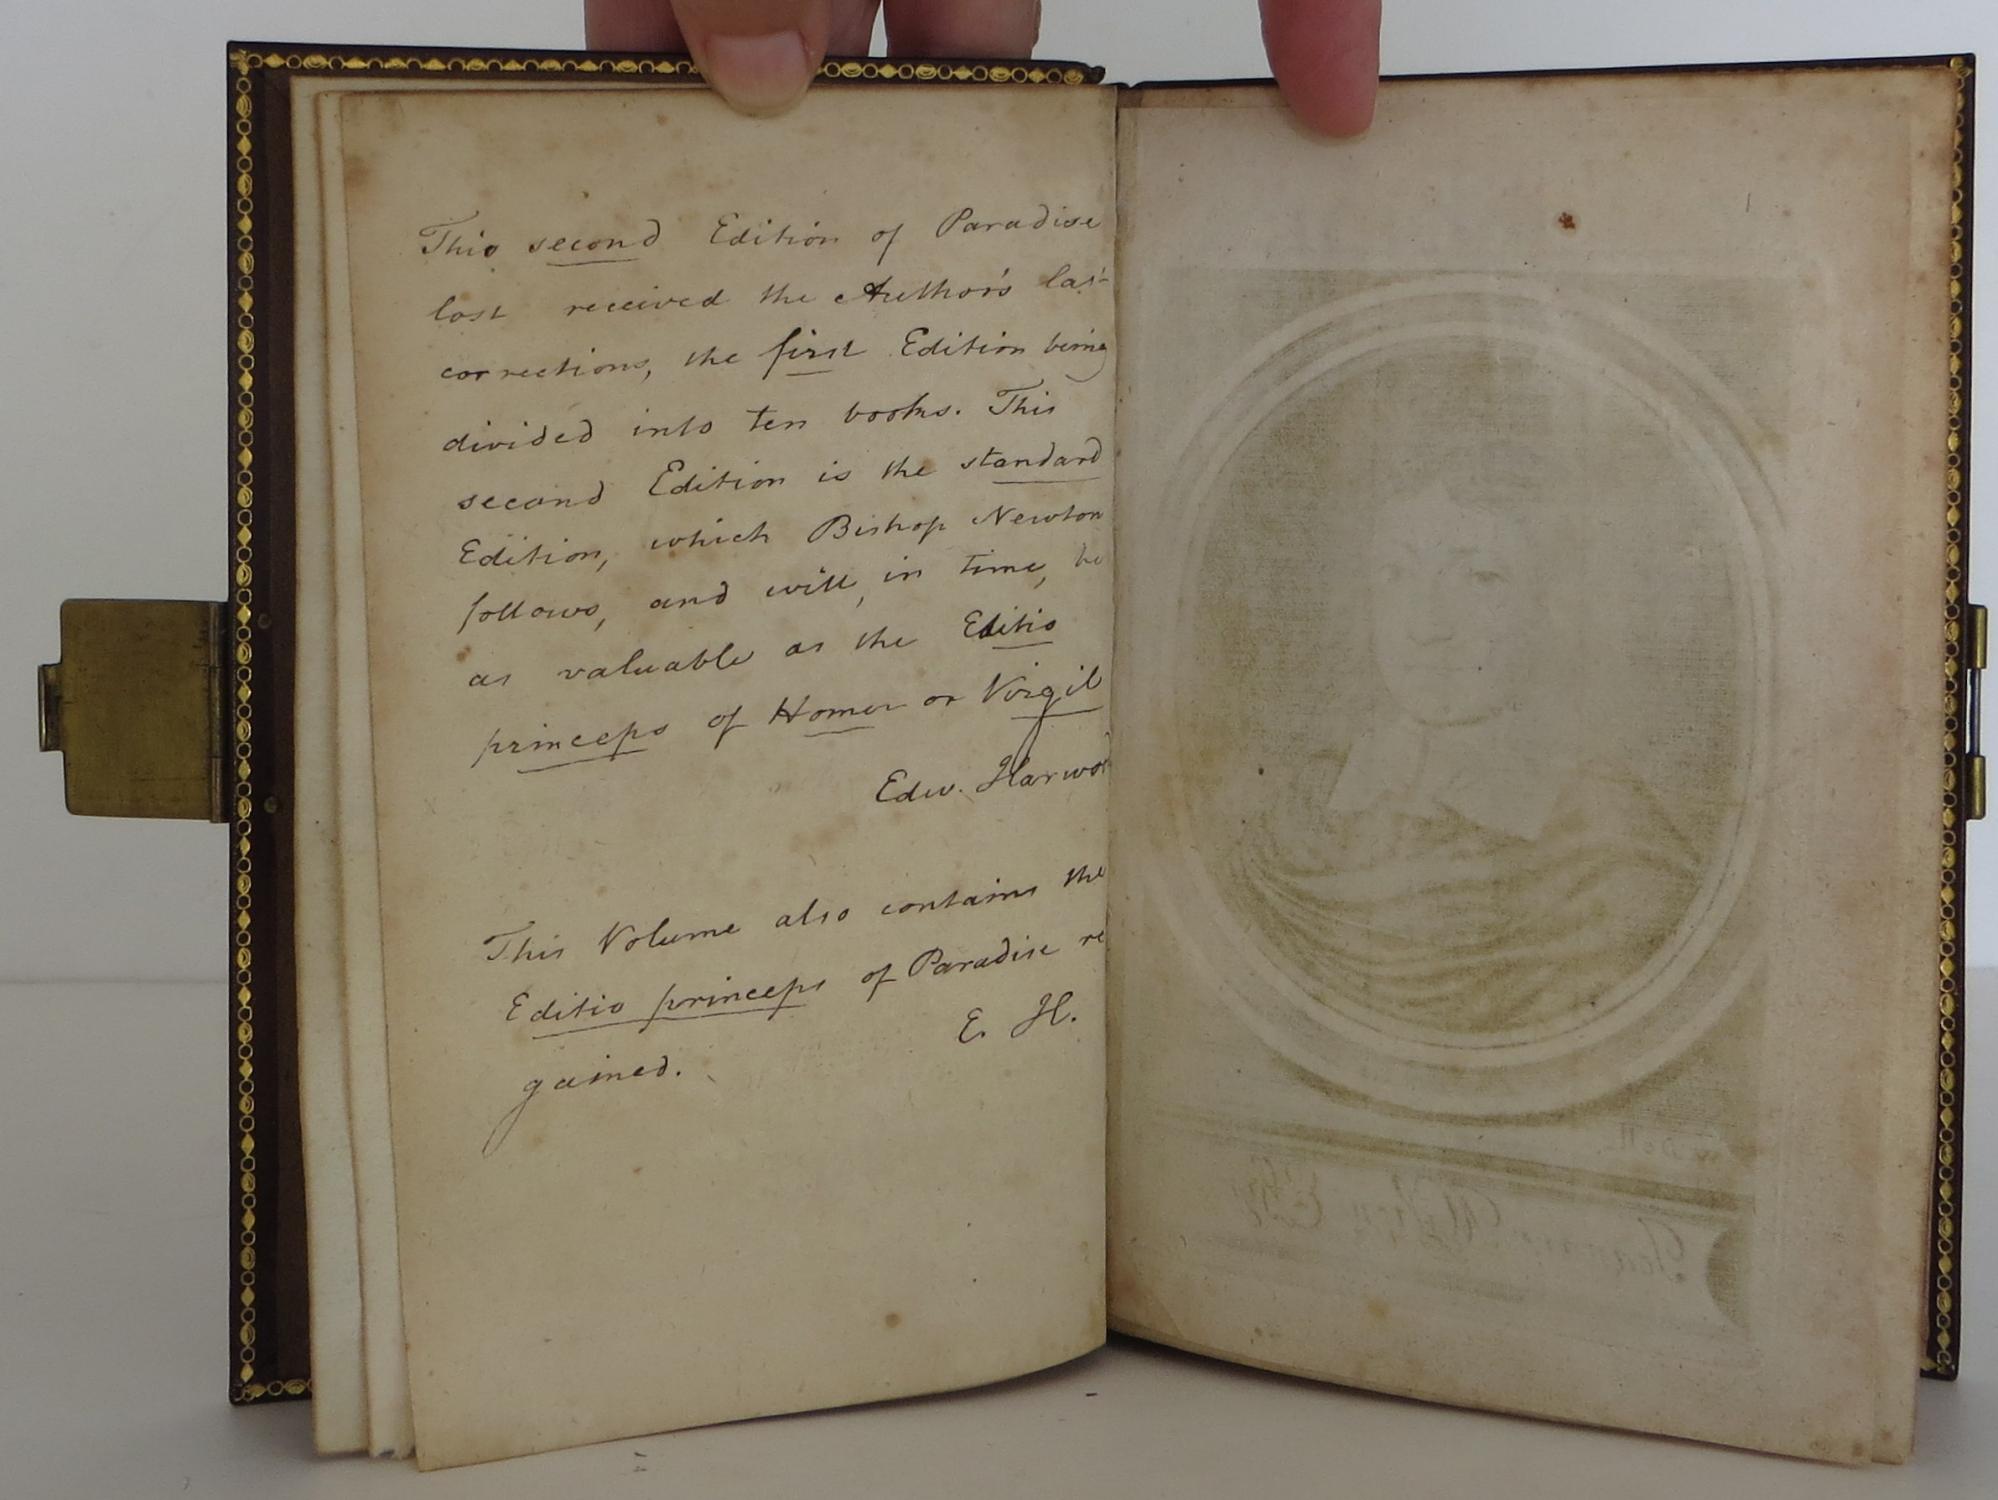 This second Edition of Paradise
lost received the Author's las
corrections, the first Edition being
divided into ten books. This
second Edition is the standard
Edition, which Bishop Newton
follows, and will, in time, be
as valuable as the Editio
princeps of Homer or Virgil
Edw. Harwo
This Volume also contains the
Editio princeps of Paradise re
gained.
E. H.